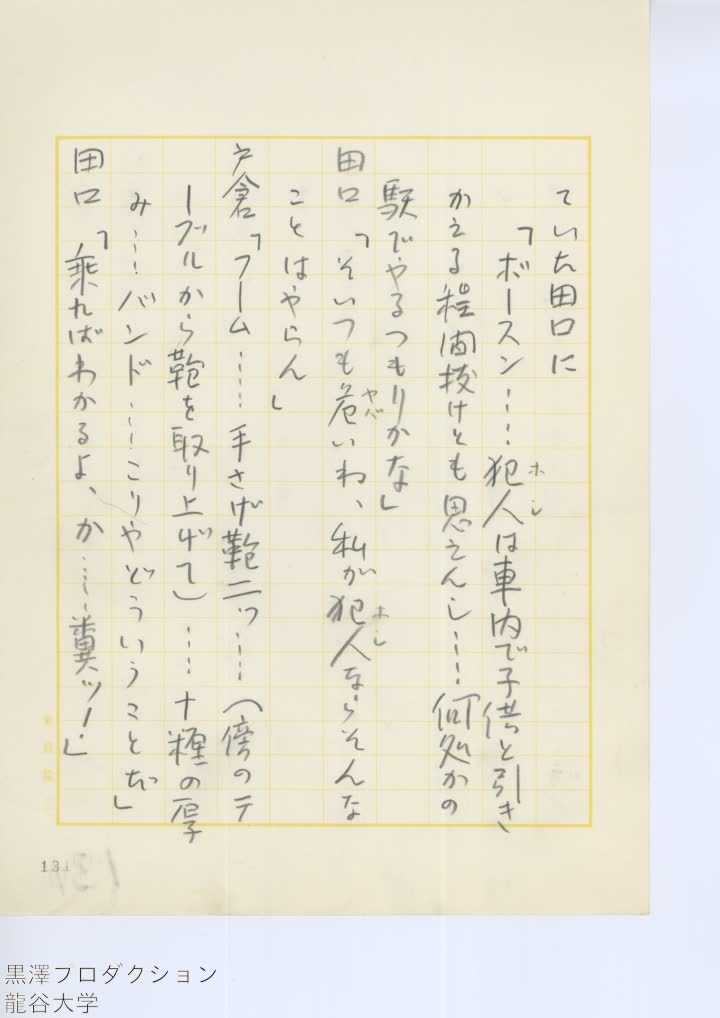 ていた田口に
「ボースン……犯人は車内で子供と引き
ホシ
かえる程間抜けとも思えんし……何処かの
駅でやるつもりかな」
田口「そいつも危いわ、私が犯人ならそんな
ヤバ
ホシ
ことはやらん」
戸倉「フーム……手さげ鞄二ツ……（傍のテ
ーブルから鞄を取り上げて）……十糎の厚
み……バンド……こりやどういうことだ」
田口「乗ればわかるよ、か……糞ッ！」
131
黒澤プロダクション
龍谷大学